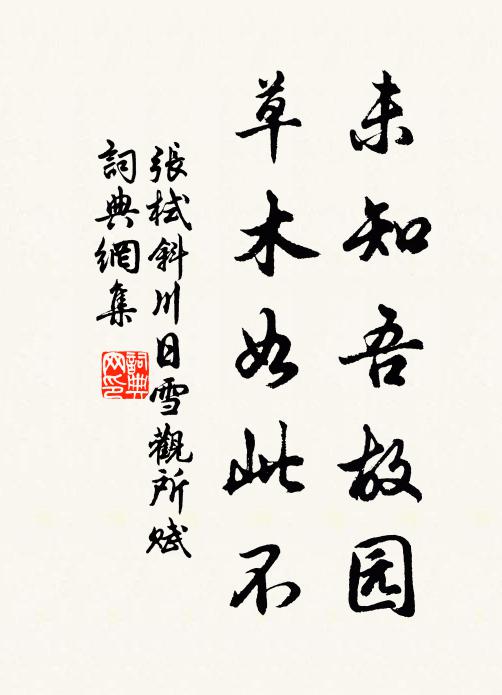 未知吾故园
草木如此不
張栻斜川日雪觀所赋
詞典網集
詞典网印